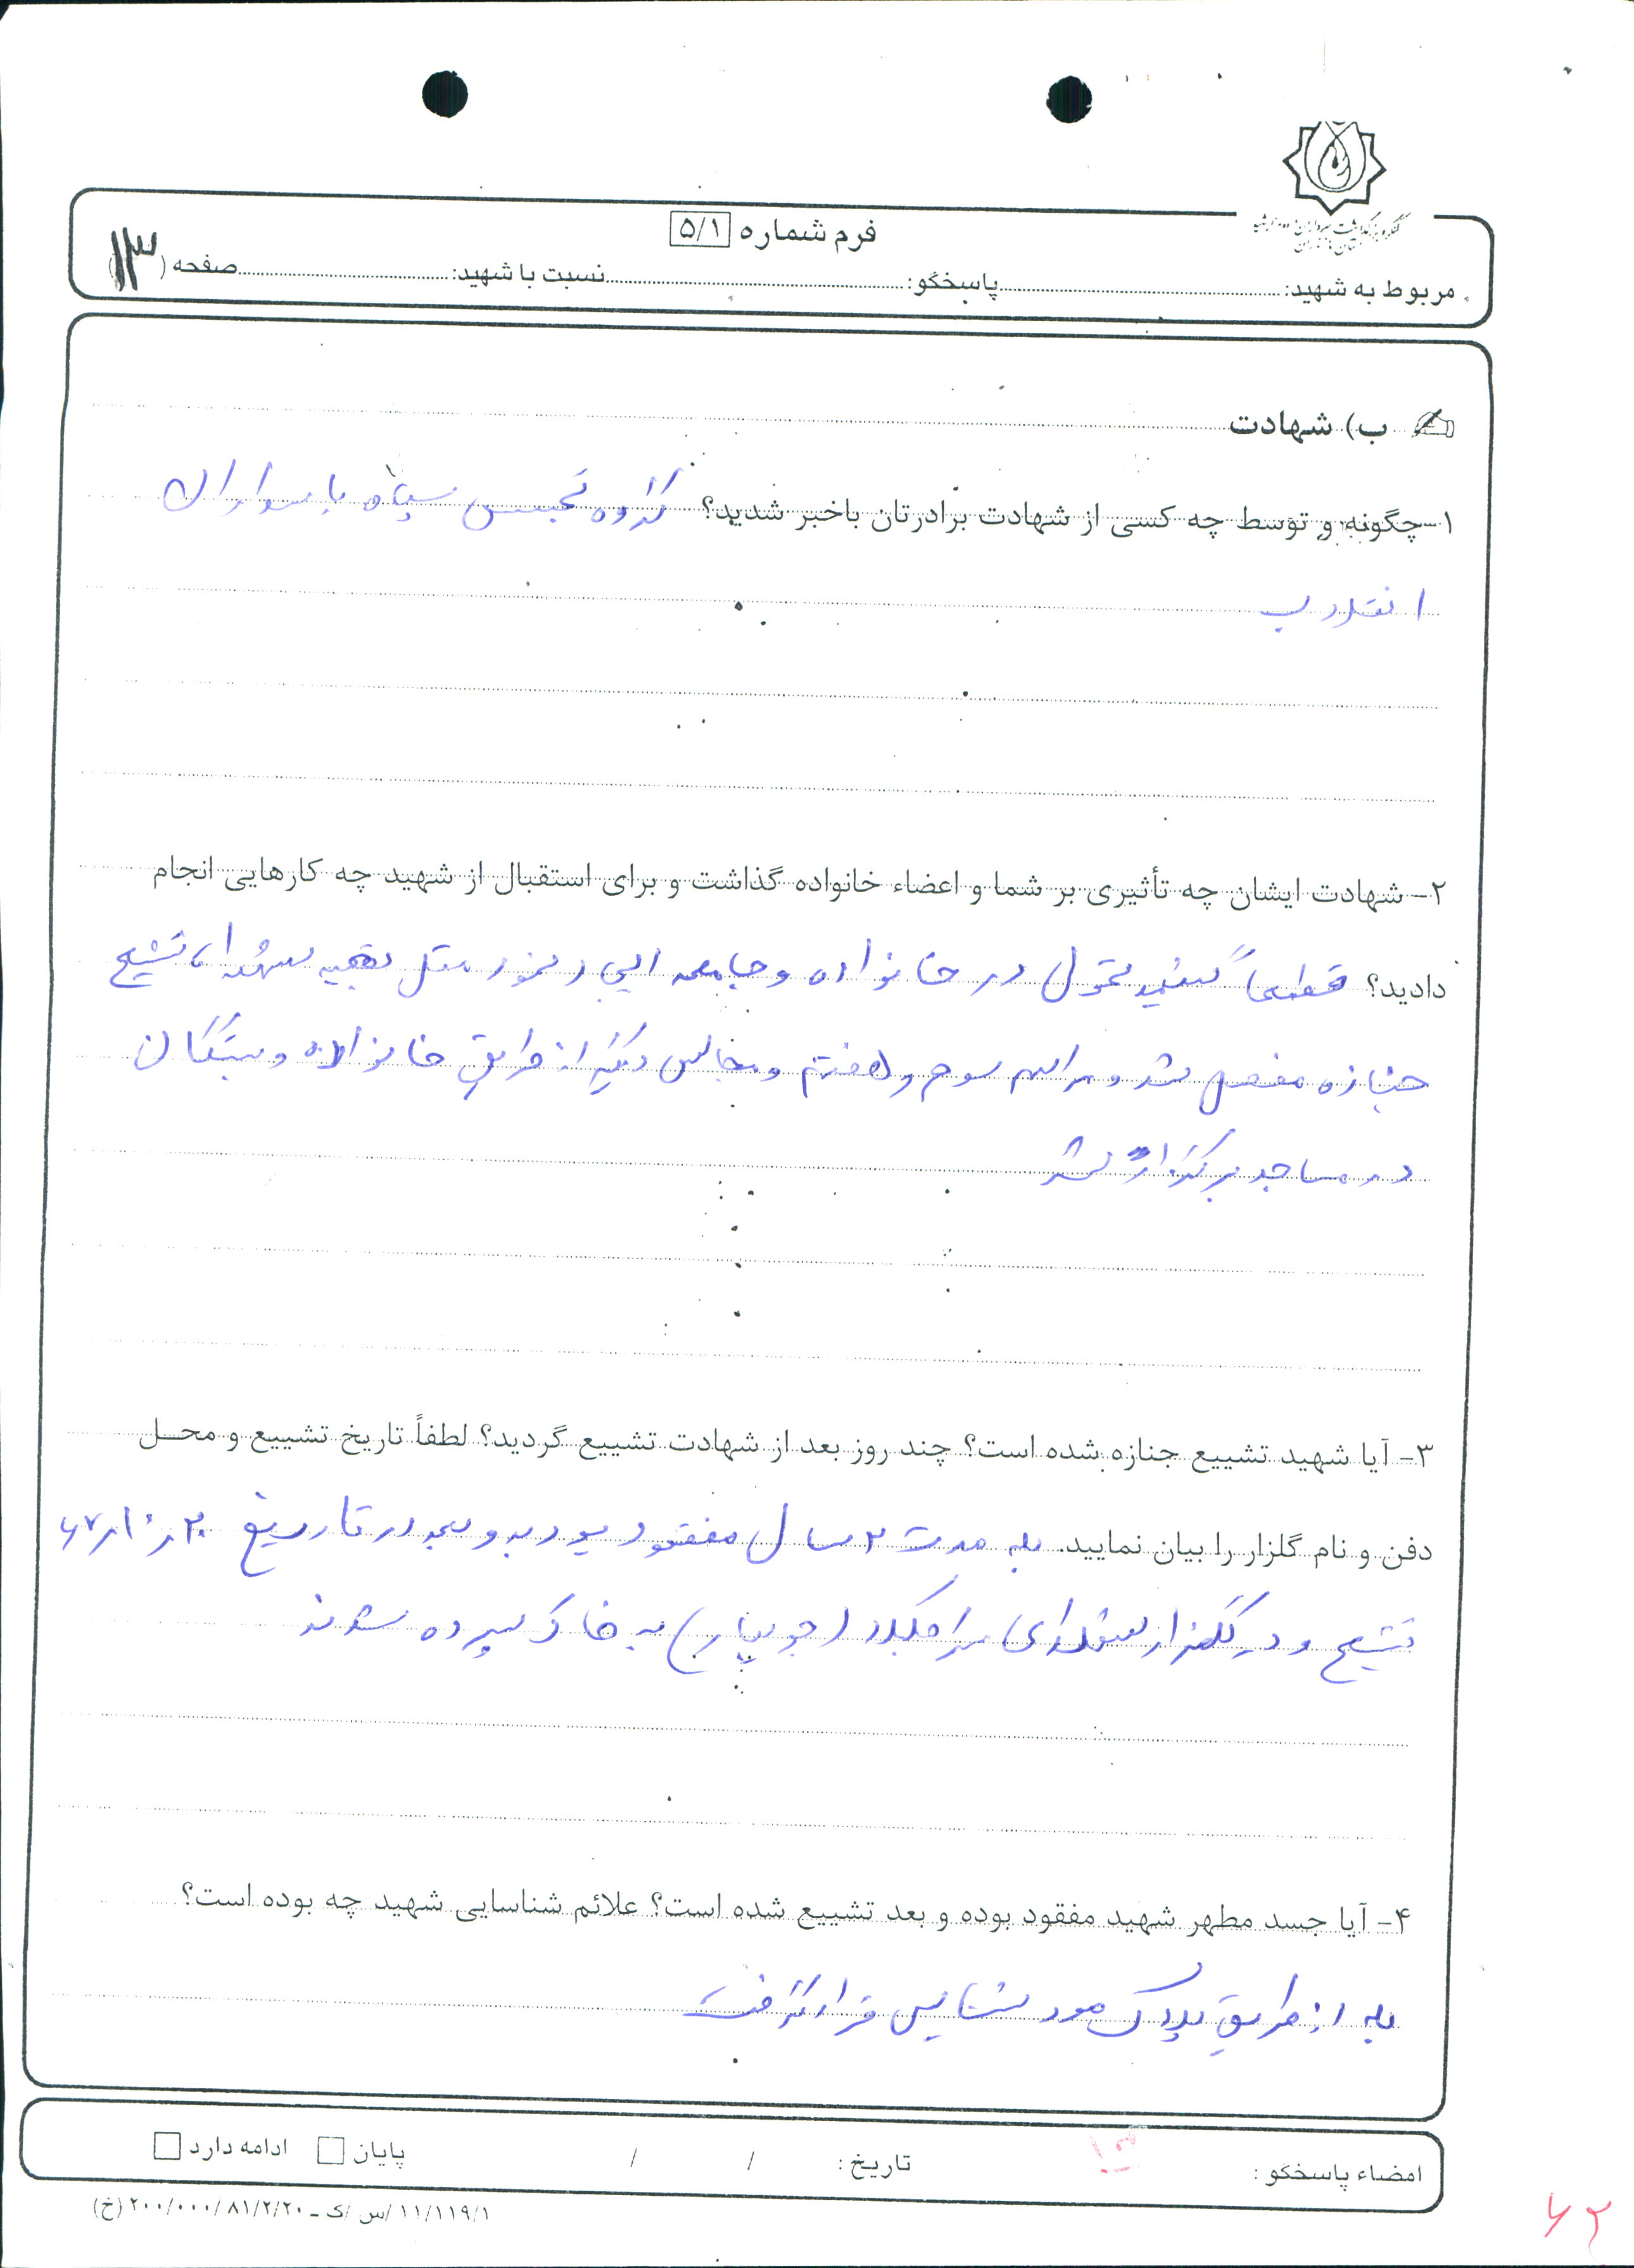 فرم شماره ۵/۱
مربوط به شهید: پاسخگو: نسبت با شهید: صفحه (۱۳)
ب) شهادت
۱-چگونه و توسط چه کسی از شهادت برادرتان باخبر شدید؟ گروه تجسس سپاه پاسداران
انقلاب
۲- شهادت ایشان چه تأثیری بر شما و اعضاء خانواده گذاشت و برای استقبال از شهید چه کارهایی انجام
دادید؟ قطعاً تحول در خانواده و جامعه مثل بقیه شهدا، تشیع
جنازه مفصل شد و مراسم سوم و هفتم و مجالس دیگر از طریق خانواده و بستگان
در مساجد برگزار شد
۳- آیا شهید تشییع جنازه شده است؟ چند روز بعد از شهادت تشییع گردید؟ لطفاً تاریخ تشییع و محل
دفن و نام گلزار را بیان نمایید. بله مدت ۲ سال مفقود بود و بعد در تاریخ ۶۷/۱۰/۲۰
تشیع و در گلزار سراجکلا (جویبار) به خاک سپرده شدند
۴- آیا جسد مطهر شهید مفقود بوده و بعد تشییع شده است؟ علائم شناسایی شهید چه بوده است؟
بله از طریق پلاک مورد شناسایی قرار گرفت
امضاء پاسخگو: تاریخ: / / پایان ادامه دارد
۱۱/۱۱۹/۱/س/ک ـ ۲۰۰/۰۰۰/۸۱/۲/۲۰ (خ)
۶۲